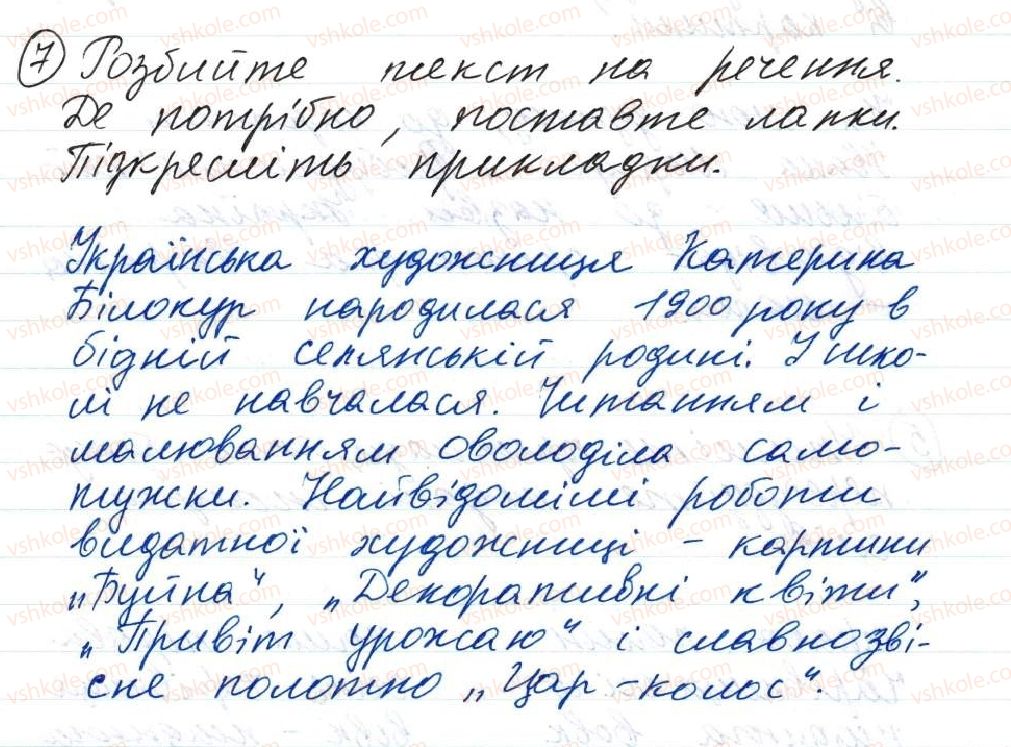 7 Розбийте текст на речення.
Де потрібно, поставте лапки.
Підкресліть прикладки.
Українська художниця Катерина
Білокур народилася 1900 року в
бідній селянській родині. У шко-
лі не навчалася. Читанням і
малюванням оволоділа само-
тужки. Найвідоміші роботи
видатної художниці - картини
„Буйна“, „Декоративні квіти“,
„Привіт урожаю“ і славнозві-
сне полотно „Цар-колос“.